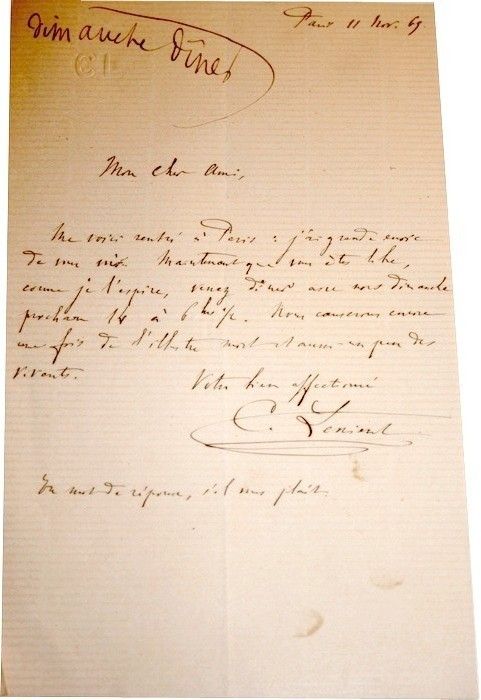 dimanche dîner
CL
Paris 11 Nov. 69.
Mon cher Ami,
Me voici rentré à Paris : j'ai grande envie
de vous voir. Maintenant que vous êtes libre,
comme je l'espère, venez dîner avec nous dimanche
prochain 14 à 6 h 1/2. Nous causerons encore
une fois de l'illustre mort et aussi un peu des
vivants.
Votre bien affectionné
C. Lenient
Un mot de réponse, s'il vous plaît.